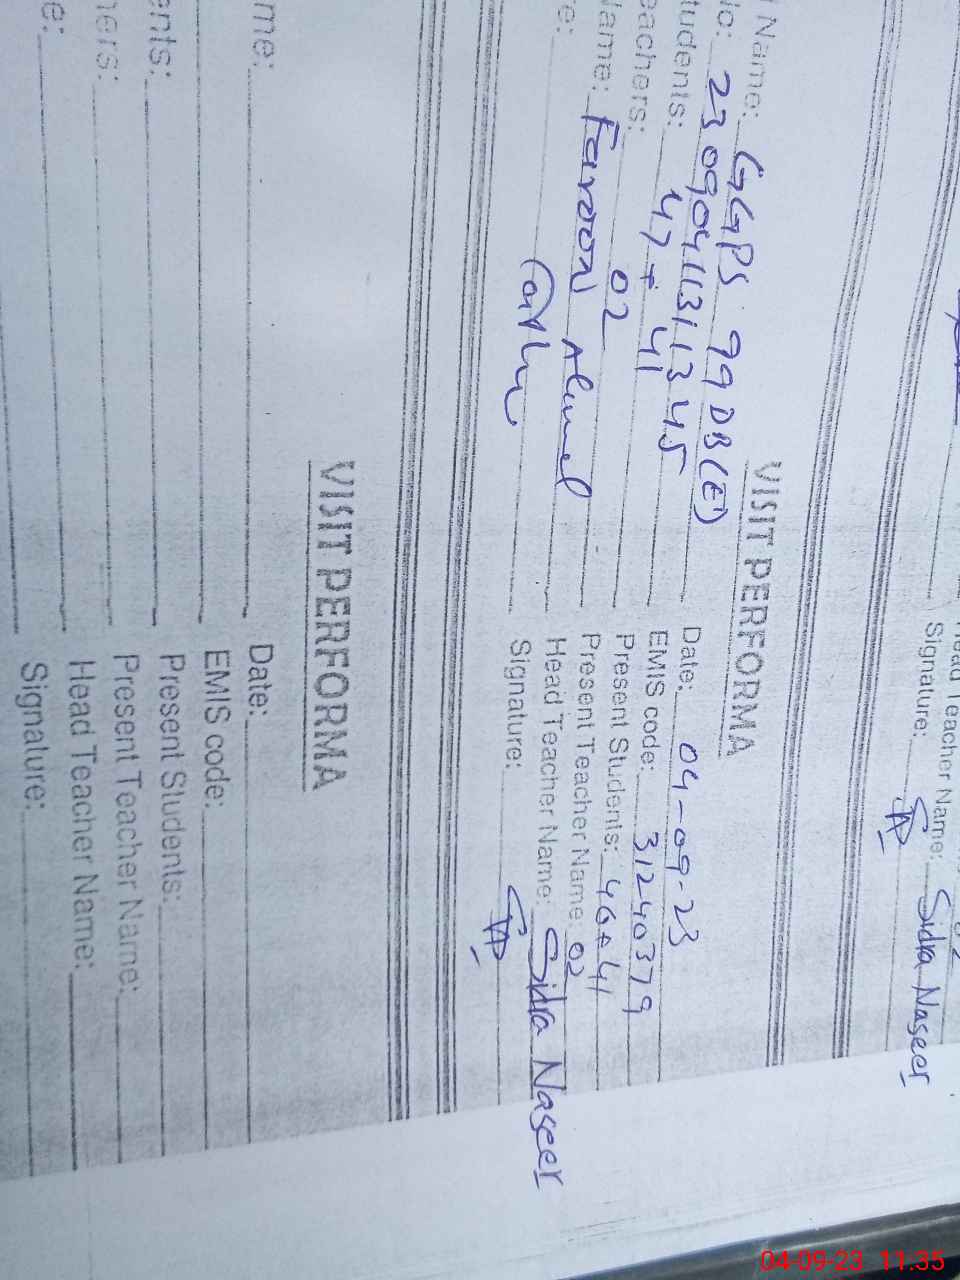 Head Teacher Name: Sidra Naseer
Signature:
VISIT PERFORMA
Name: GGPS 99 DB(E) Date: 04-09-23
23090411311345 EMIS code: 31240379
tudents: 47+41 Present Students: 40+41
eachers: 02 Present Teacher Name: 02
Name: Farooq Ahmed Head Teacher Name: Sidra Naseer
e: Signature:
VISIT PERFORMA
me: Date:
EMIS code:
ents: Present Students:
hers: Present Teacher Name:
Head Teacher Name:
e: Signature:
04-09-23 11:35